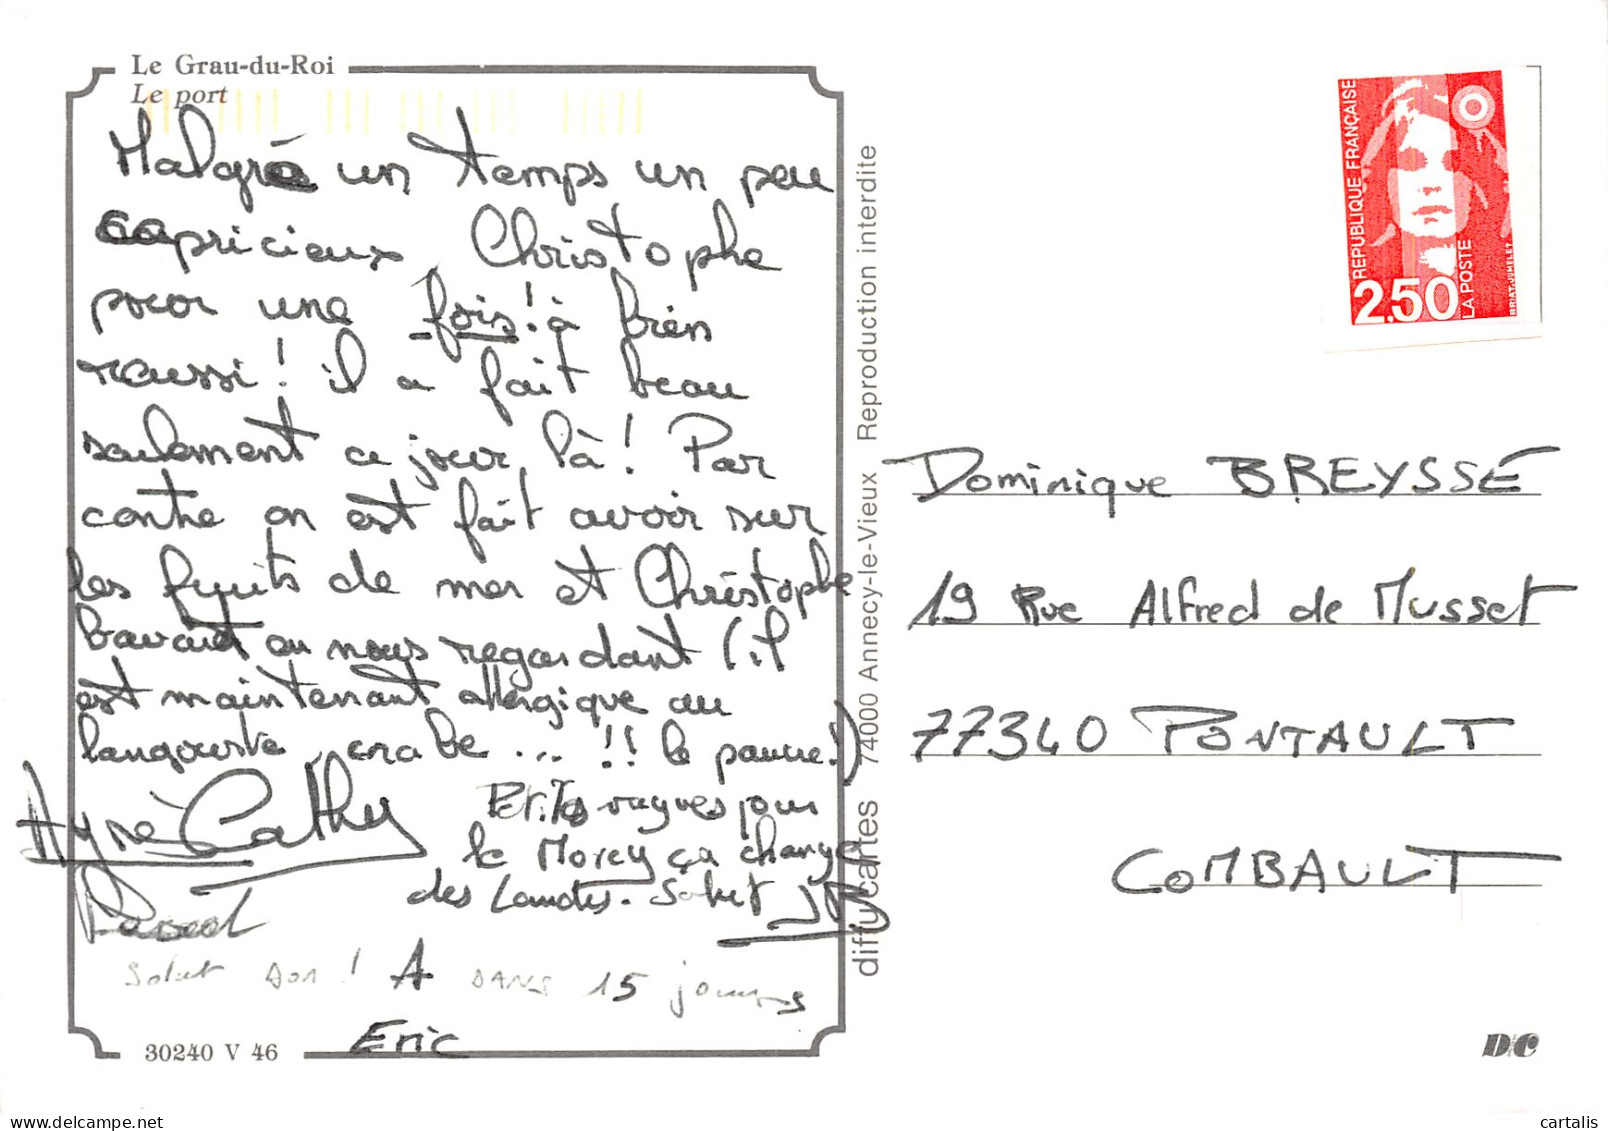 Le Grau-du-Roi
Le port
Malgré un temps un peu
capricieux, Christophe
pour une fois! à bien
reussi! il a fait beau
seulement ce jour, là! Par
contre on est fait avoir sur
les fruits de mer et Christophe
bavait en nous regardant (il
est maintenant allergique au
langouste, crabe ... !! le pauvre!)
Cathy
Petites vagues pour
le Morey ça change
des Landes. Salut JB
Pascal
Salut Dom! A DANS 15 jours
Eric
30240 V 46
diffu cartes 74000 Annecy-le-Vieux Reproduction interdite
REPUBLIQUE FRANÇAISE
2,50
LA POSTE
BRIAT-JUMELET
Dominique BREYSSE
19 Rue Alfred de Musset
77340 PONTAULT
COMBAULT
D/C
cartalis
www.delcampe.net